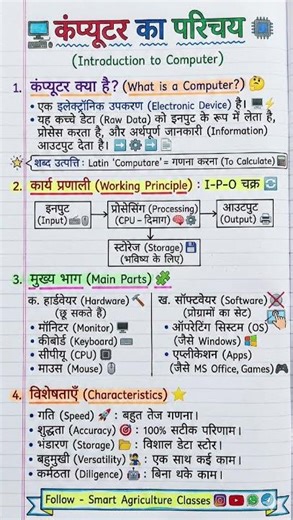 कंप्यूटर का परिचय
(Introduction to Computer)
1. कंप्यूटर क्या है? (What is a Computer?)
• एक इलेक्ट्रॉनिक उपकरण (Electronic Device) है।
• यह कच्चे डेटा (Raw Data) को इनपुट के रूप में लेता है,
प्रोसेस करता है, और अर्थपूर्ण जानकारी (Information)
आउटपुट देता है।
शब्द उत्पत्ति : Latin 'Computare' = गणना करना (To Calculate)
2. कार्य प्रणाली (Working Principle) : I-P-O चक्र
इनपुट
(Input)
प्रोसेसिंग (Processing)
(CPU - दिमाग)
आउटपुट
(Output)
स्टोरेज (Storage)
(भविष्य के लिए)
3. मुख्य भाग (Main Parts)
क. हार्डवेयर (Hardware)
(छू सकते हैं)
• मॉनिटर (Monitor)
• कीबोर्ड (Keyboard)
• सीपीयू (CPU)
• माउस (Mouse)
ख. सॉफ्टवेयर (Software)
(प्रोग्रामों का सेट)
• ऑपरेटिंग सिस्टम (OS)
(जैसे Windows)
• एप्लीकेशन (Apps)
(जैसे MS Office, Games)
4. विशेषताएँ (Characteristics)
• गति (Speed) : बहुत तेज गणना।
• शुद्धता (Accuracy) : 100% सटीक परिणाम।
• भंडारण (Storage) : विशाल डेटा स्टोर।
• बहुमुखी (Versatility) : एक साथ कई काम।
• कर्मठता (Diligence) : बिना थके काम।
Follow - Smart Agriculture Classes